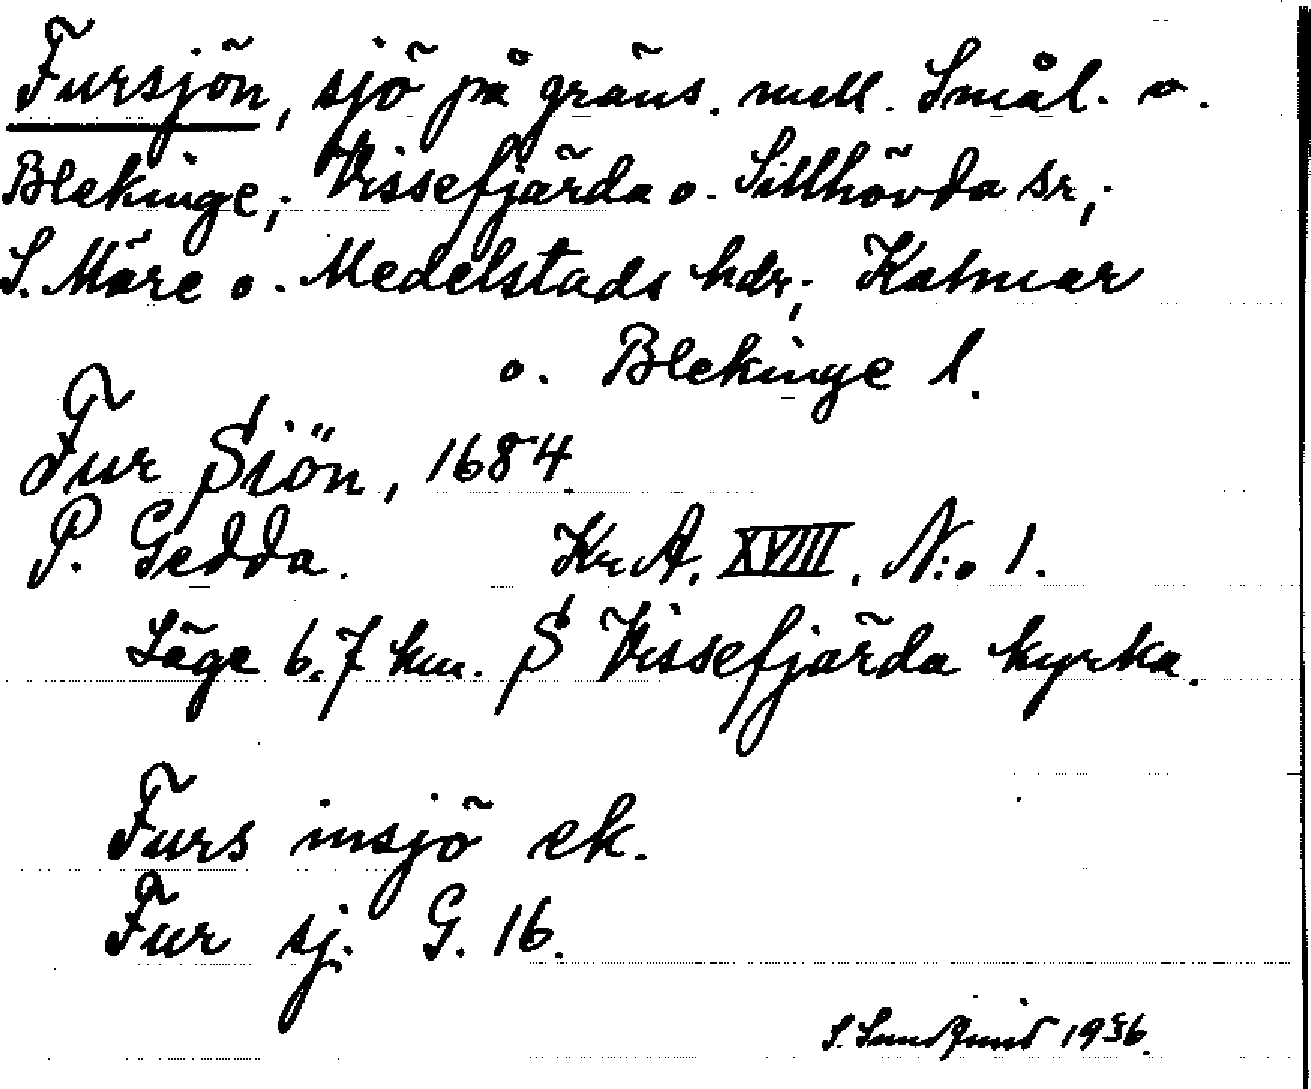 Fursjön, sjö på gräns. mell. Smål. o.
Blekinge; Vissefjärda o. Sillhövda sr;
S. Möre o. Medelstads hdr; Kalmar
o. Blekinge l.
Fur Siön, 1684.
P. Gedda. Kr. A. XVIII. N:o 1.
Läge 6.7 km. S Vissefjärda kyrka.
Furs insjö ek.
Fur sj. G. 16.
S. 1936.